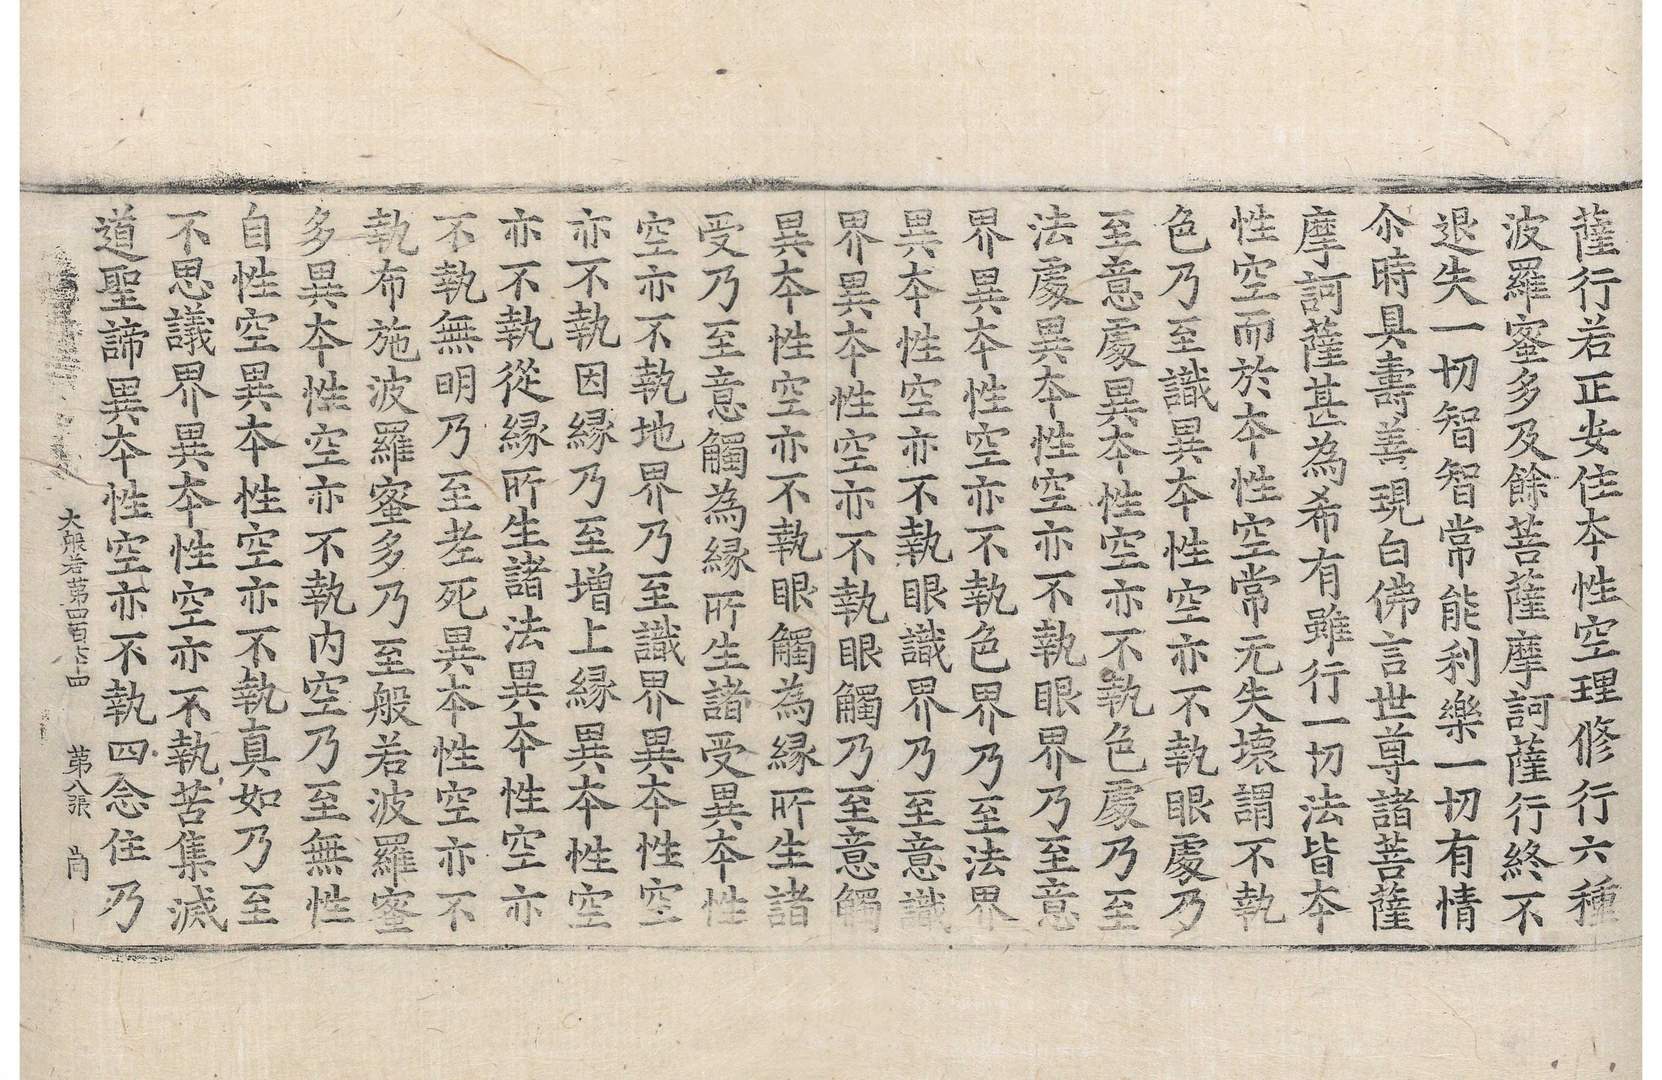 薩行若正安住本性空理修行六種
波羅蜜多及餘菩薩摩訶薩行終不
退失一切智智常能利樂一切有情
尒時具壽善現白佛言世尊諸菩薩
摩訶薩甚為希有雖行一切法皆本
性空而於本性空常无失壞謂不執
色乃至識異本性空亦不執眼處乃
至意處異本性空亦不執色處乃至
法處異本性空亦不執眼界乃至意
界異本性空亦不執色界乃至法界
異本性空亦不執眼識界乃至意識
界異本性空亦不執眼觸乃至意觸
異本性空亦不執眼觸為緣所生諸
受乃至意觸為緣所生諸受異本性
空亦不執地界乃至識界異本性空
亦不執因緣乃至增上緣異本性空
亦不執從緣所生諸法異本性空亦
不執無明乃至老死異本性空亦不
執布施波羅蜜多乃至般若波羅蜜
多異本性空亦不執內空乃至無性
自性空異本性空亦不執真如乃至
不思議界異本性空亦不執苦集滅
道聖諦異本性空亦不執四念住乃
大般若第四百 第八張